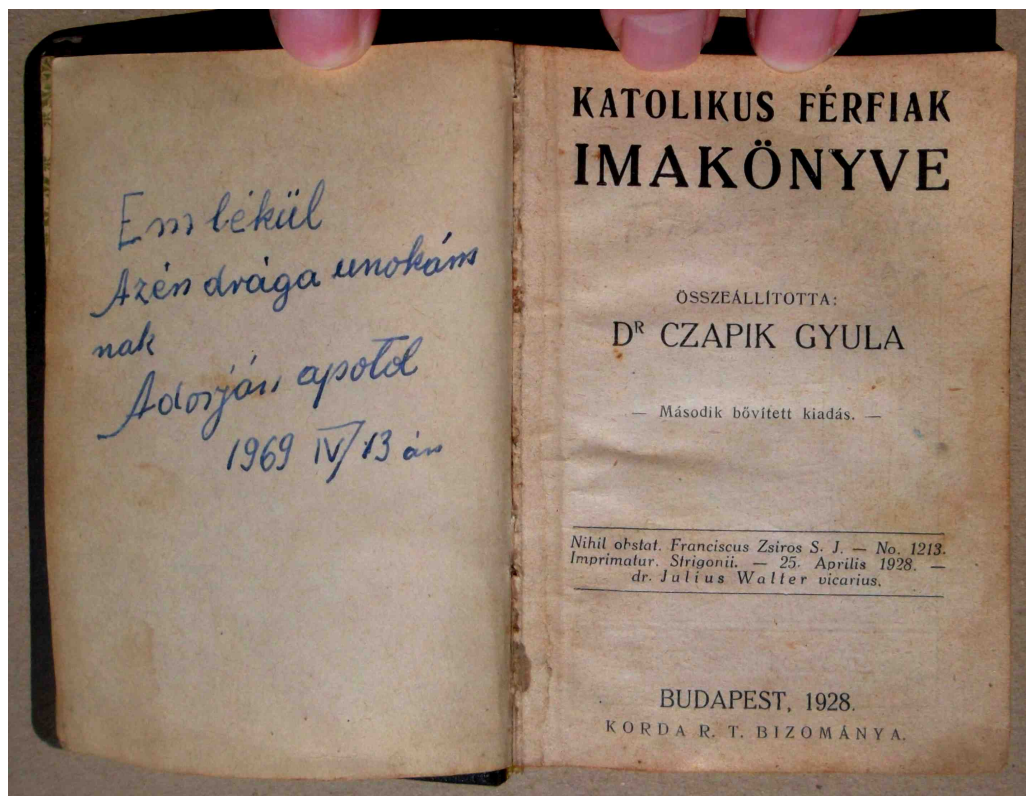 Emlékül
Azén drága unokám
nak
Adorján apotól
1969 IV/13 án
KATOLIKUS FÉRFIAK
IMAKÖNYVE
ÖSSZEÁLLÍTOTTA:
DR CZAPIK GYULA
— Második bővített kiadás. —
Nihil obstat. Franciscus Zsiros S. J. — No. 1213.
Imprimatur. Strigonii. — 25. Aprilis 1928. —
dr. Julius Walter vicarius.
BUDAPEST, 1928.
KORDA R. T. BIZOMÁNYA.